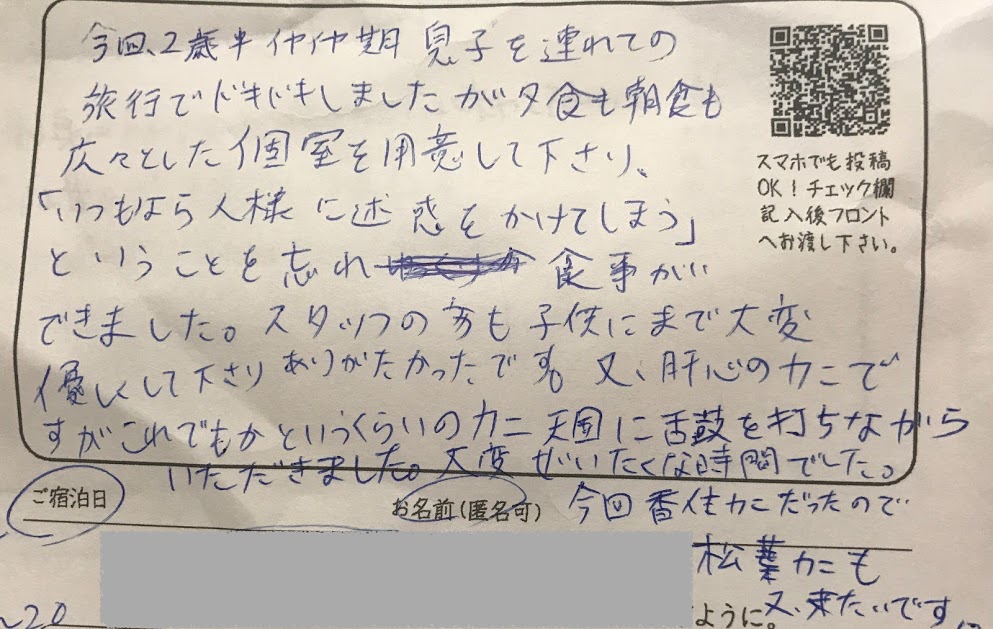 今回、2歳半イヤイヤ期息子を連れての
旅行でドキドキしましたが夕食も朝食も
広々とした個室を用意して下さり、
「いつもなら人様に迷惑をかけてしまう」
ということを忘れ 食事が
できました。スタッフの方も子供にまで大変
優しくして下さりありがたかったです。又、肝心のカニで
すがこれでもかというくらいのカニ天国に舌鼓を打ちながら
いただきました。大変ぜいたくな時間でした。
スマホでも投稿
OK!チェック欄
記入後フロント
へお渡し下さい。
ご宿泊日
お名前(匿名可)
今回香住カニだったので
松葉カニも
ように。又、来たいです
20